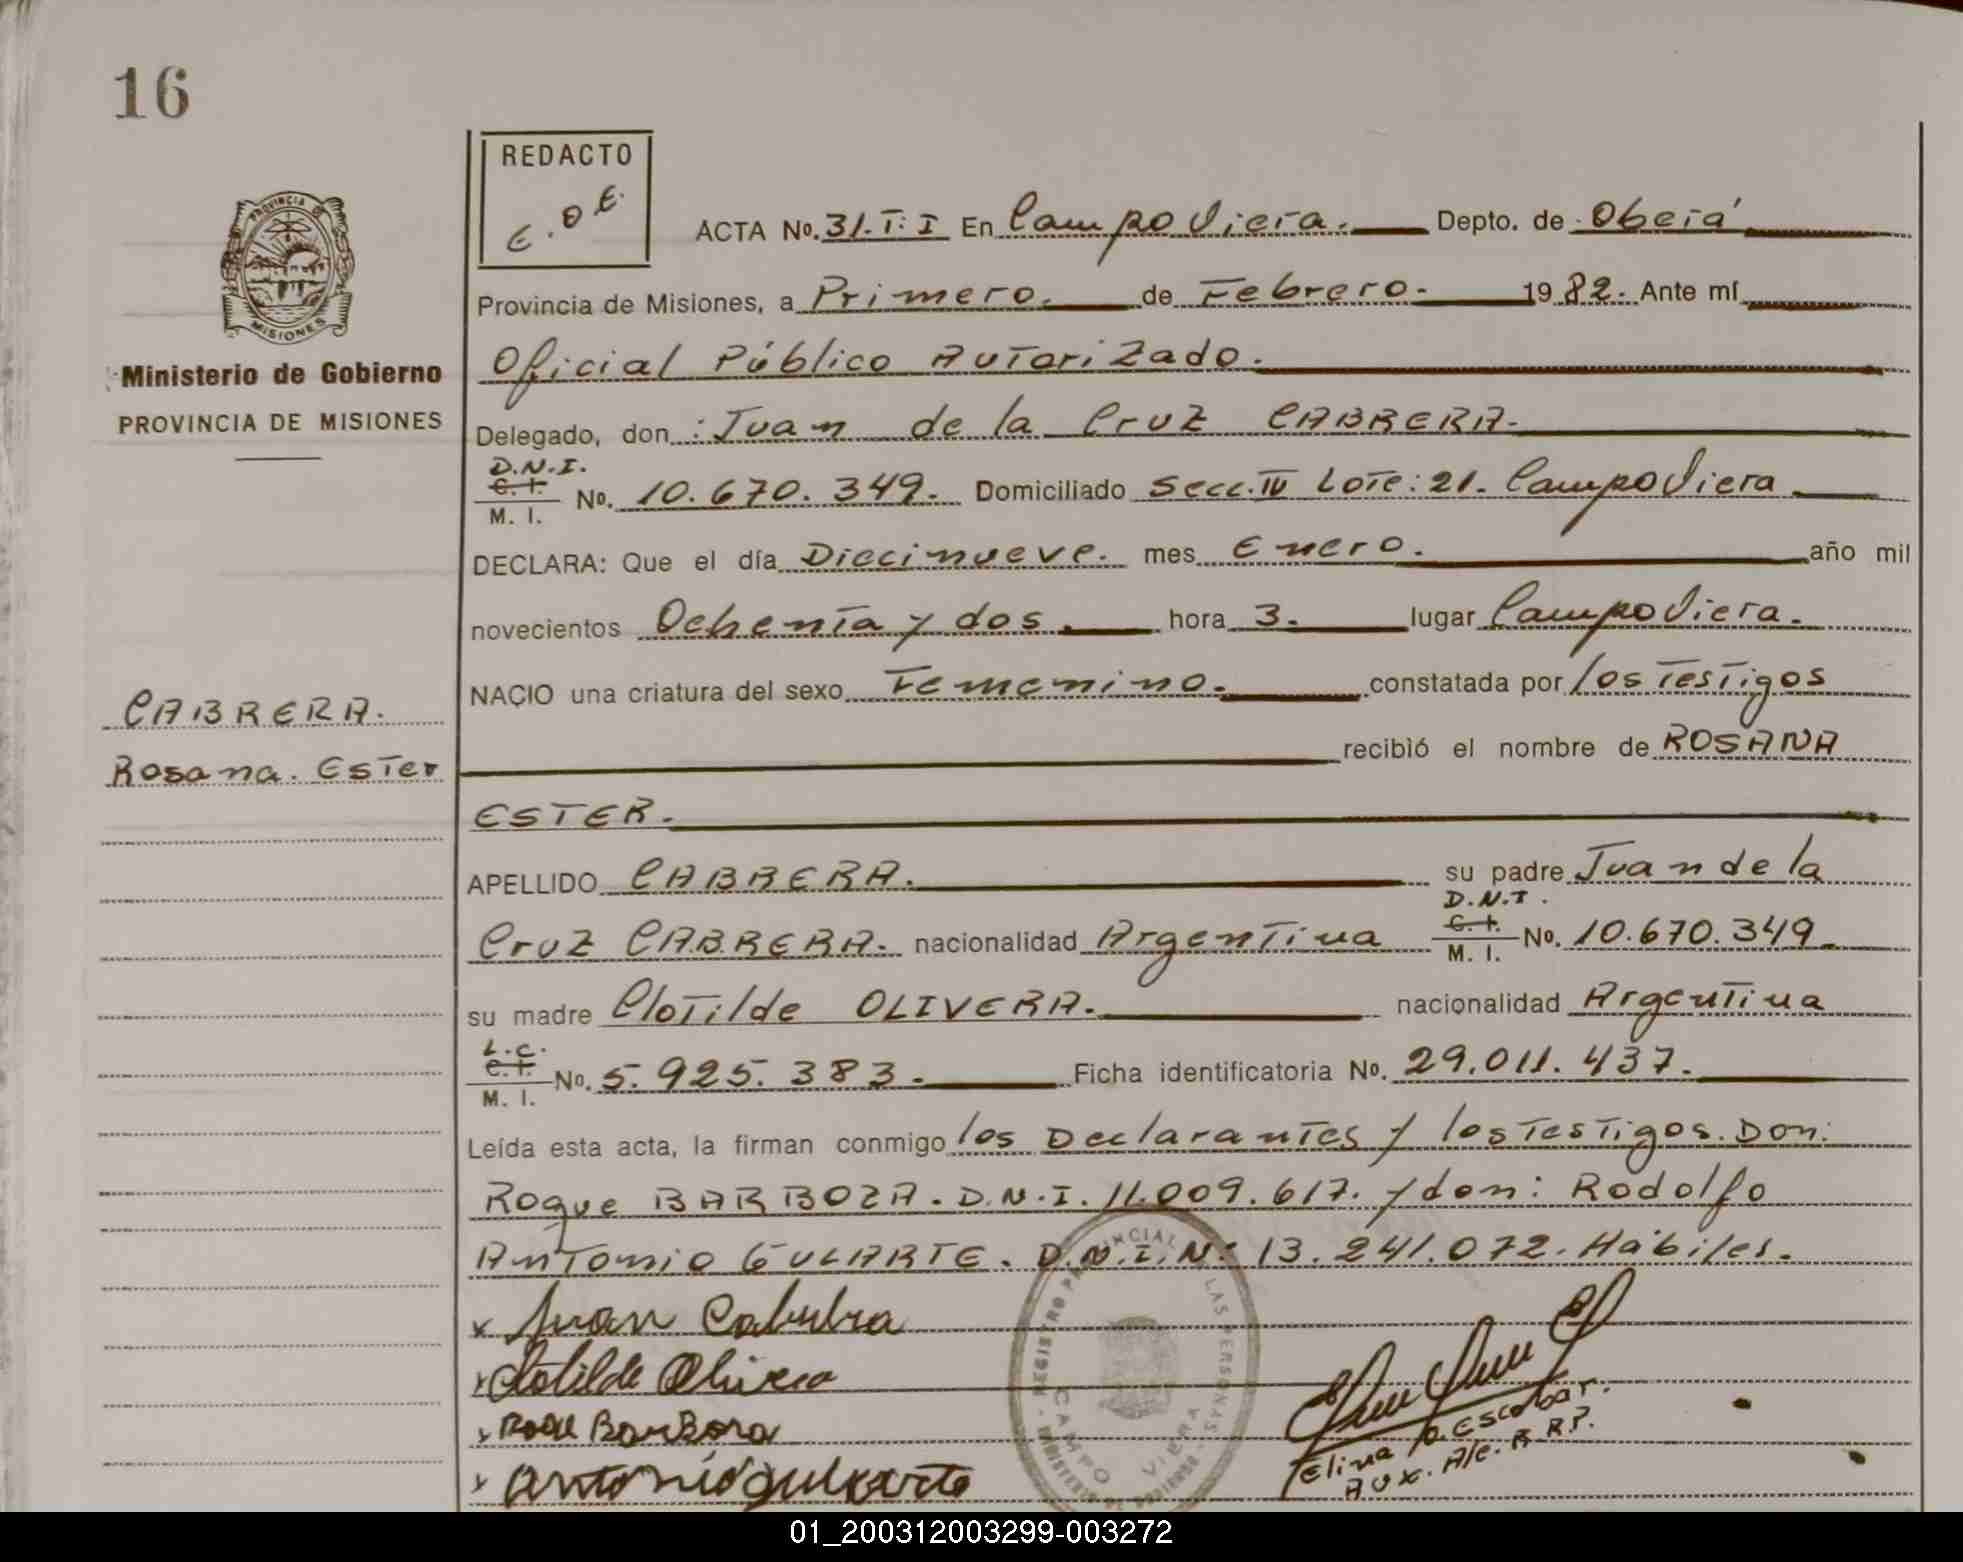 16
REDACTO
E.O.E.
PROVINCIA DE
MISIONES
ACTA No. 31.T: I En Campo Viera. Depto. de Oberá
Provincia de Misiones, a Primero. de Febrero. 1982. Ante mí
Ministerio de Gobierno
PROVINCIA DE MISIONES
Oficial Público Autorizado.
Delegado, don : Juan de la Cruz CABRERA.
D.N.I.
C. I.
M. I. No. 10.670.349. Domiciliado Secc. IV Lote: 21. Campo Viera
DECLARA: Que el día Diecinueve. mes Enero. año mil
novecientos Ochenta y dos. hora 3. lugar Campo Viera.
NACIO una criatura del sexo Femenino. constatada por los Testigos
CABRERA.
Rosana. Ester
recibió el nombre de ROSANA
ESTER.
APELLIDO CABRERA. su padre Juan de la
Cruz CABRERA. nacionalidad Argentina D.N.I. C. I. M. I. No. 10.670.349
su madre Clotilde OLIVERA. nacionalidad Argentina
L.C.
C. I.
M. I. No. 5.925.383. Ficha identificatoria No. 29.011.437.
Leída esta acta, la firman conmigo los Declarantes y los Testigos. Don:
Roque BARBOZA. D.N.I. 11.009.617. y don: Rodolfo
Antonio GULARTE. D.N.I. N: 13.241.072. Hábiles.
x Juan Cabrera
x Clotilde Olivera
x Roque Barboza
x Antonio Gularte
REGISTRO PROVINCIAL DE LAS PERSONAS
CAMPO VIERA
MINISTERIO DE GOBIERNO
Elina O. Escobar.
AUX. A/C. R.R.P.
01_200312003299-003272